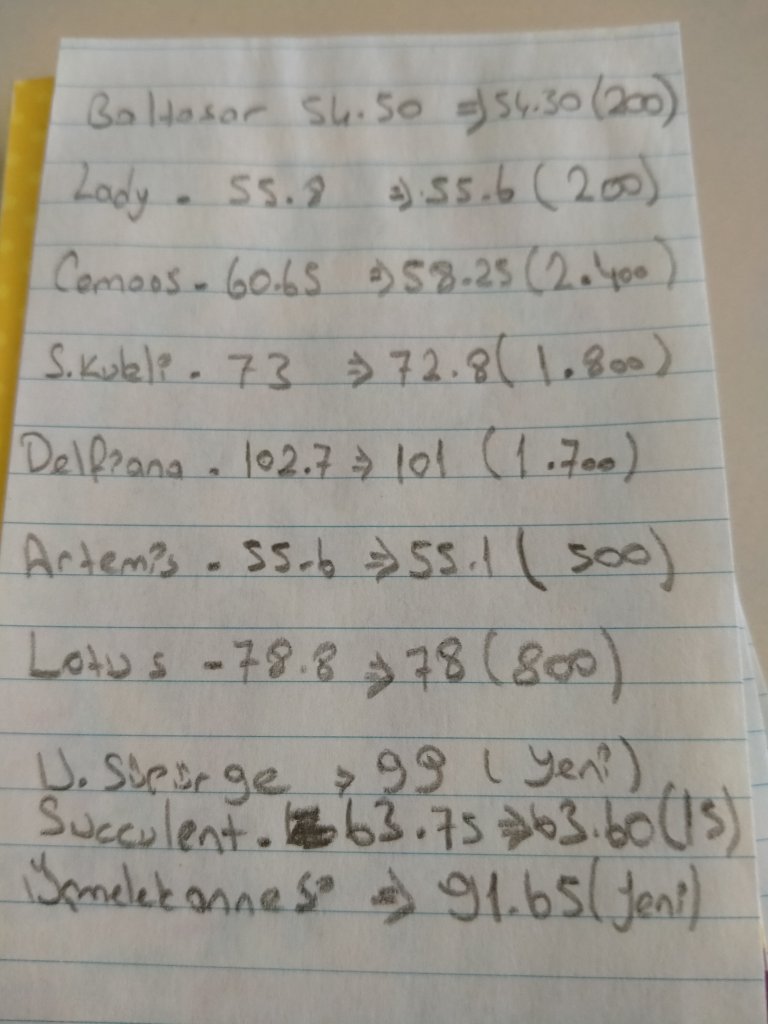 Baltasar 54.50 ⇒ 54.30 (200)
Lady - 55.8 ⇒ 55.6 (200)
Comoos - 60.65 ⇒ 58.25 (2.400)
S.Kubli - 73 ⇒ 72.8 (1.800)
Delfiana - 102.7 ⇒ 101 (1.700)
Artemis - 55.6 ⇒ 55.1 (500)
Lotus - 78.8 ⇒ 78 (800)
U. Süpürge ⇒ 99 (yeni)
Succulent - 63.75 ⇒ 63.60 (15)
⇒ 91.65 (yeni)